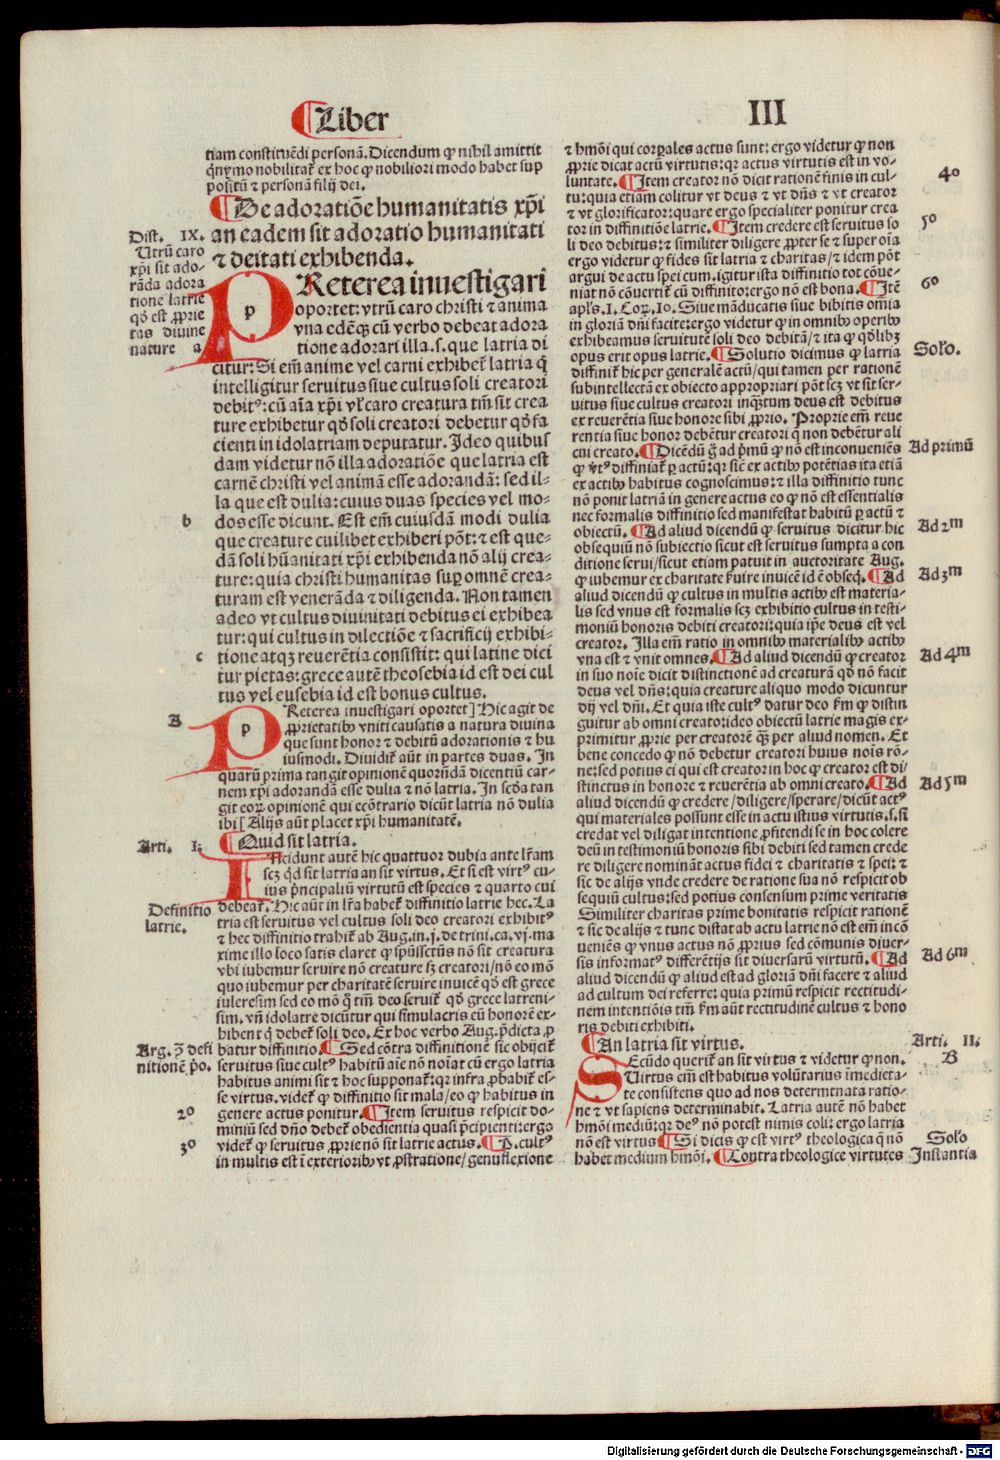 ¶Liber
III
tiam constituēdi personā. Dicendum ꝙ nihil amittit
qͥnymo nobilitat̃ ex hoc ꝙ nobiliori modo habet sup
positū ⁊ personā filij dei.
¶De adoratiōe humanitatis xp̄i
an eadem sit adoratio humanitati
⁊ deitati exhibenda.
Dist. IX.
Utrū caro
xp̄i sit ado-
rāda adora
tione latrie
qḋ est ꝓprie
tas diuine
nature a
PReterea inuestigari
oportet: vtrū caro christi ⁊ anima
vna edēqꝫ cū verbo debeat adora
tione adorari illa .s. que latria di
citur: Si em̄ anime vel carni exhibet̃ latria q̄
intelligitur seruitus siue cultus soli creatori
debitꝰ: cū aīa xp̄i vl̓ caro creatura tm̄ sit crea
ture exhibetur qḋ soli creatori debetur qḋ fa
cienti in idolatriam deputatur. Ideo quibus
dam videtur nō illa adoratiōe que latria est
carnē christi vel animā esse adorandā: sed il-
la que est dulia: cuius duas species vel mo-
b
dos esse dicunt. Est em̄ cuiusdā modi dulia
que creature cuilibet exhiberi pōt: ⁊ est que-
dā soli hūanitati xp̄i exhibenda nō alij crea-
ture: quia christi humanitas suꝑ omnē crea-
turam est venerāda ⁊ diligenda. Non tamen
adeo vt cultus diuinitati debitus ei exhibea
tur: qui cultus in dilectiōe ⁊ sacrificij exhibi-
c
tione atqꝫ reuerētia consistit: qui latine dici
tur pietas: grece autē theosebia id est dei cul
tus vel eusebia id est bonus cultus.
A
PReterea inuestigari oportet] Hic agit de
ꝓprietatibꝰ vniti causatis a natura diuina
que sunt honor ⁊ debitū adorationis ⁊ hu
iusmodi. Diuidit̃ aūt in partes duas. In
quarū prima tangit opinionē quorūdā dicentiū car-
nem xp̄i adorandā esse dulia ⁊ nō latria. In scḋa tan
git eoꝝ opinionē qui ecōtrario dicūt latria nō dulia
ibi [Alijs aūt placet xp̄i humanitatē.
Arti. I.
¶Quid sit latria.
INcidunt autē hic quattuor dubia ante lr̄am
scꝫ qͥd sit latria an sit virtus. Et si est virtꝰ cu-
ius pͥncipaliū virtutū est species ⁊ quarto cui
Definitio
latrie.
debeat̃. Hic aūt in lr̄a habet̃ diffinitio latrie hec. La
tria est seruitus vel cultus soli deo creatori exhibitꝰ
⁊ hec diffinitio trahit̃ ab Aug. in .j. de trini. ca. vj. ma
xime illo loco satis claret ꝙ spūssctūs nō sit creatura
vbi iubemur seruire nō creature sꝫ creatori / nō eo mō
quo iubemur per charitatē seruire inuicē qḋ est grece
iuleresim sed eo mō q̄ tm̄ deo seruit̃ qḋ grece latreni-
sim. vn̄ idolatre dicūtur qui simulacris cū honorē ex-
hibent q̄ debet̃ soli deo. Ex hoc verbo Aug. pͥdicta ꝓ
Arg. ꝯ̄ defi
nitionē pͥo.
batur diffinitio. ¶Sed cōtra diffinitionē sic obijcit̃
seruitus siue cultꝰ habitū aīe nō noīat cū ergo latria
habitus animi sit ⁊ hoc supponat̃: qꝛ infra ꝓbabit̃ es-
se virtus. videt̃ ꝙ diffinitio sit mala / eo ꝙ habitus in
2º
genere actus ponitur. ¶Item seruitus respicit do-
miniū sed dn̄o debet̃ obedientia quasi pͥcipienti: ergo
3º
videt̃ ꝙ seruitus ꝓprie nō sit latrie actus. ¶P. cultꝰ
in multis est ī exterioribꝰ vt ꝓstratione / genuflexione
⁊ hmōi qui corꝑales actus sunt: ergo videtur ꝙ non
ꝓprie dicat actū virtutis: qꝛ actus virtutis est in vo-
4º
luntate. ¶Item creator nō dicit rationē finis in cul-
tu: quia etiam colitur vt deus ⁊ vt dn̄s ⁊ vt creator
⁊ vt glorificator: quare ergo specialiter ponitur crea
5º
tor in diffinitiōe latrie. ¶Item credere est seruitus so
li deo debitus: ⁊ similiter diligere ꝓpter se ⁊ super oīa
ergo videtur ꝙ fides sit latria ⁊ charitas / ⁊ idem pōt
argui de actu spei cum. igitur ista diffinitio tot cōue-
6º
niat nō cōuertit̃ cū diffinito: ergo nō est bona. ¶Itē
apl̓s. 1. Coꝝ. 10. Siue māducatis siue bibitis omīa
in gloriā dn̄i facite: ergo videtur ꝙ in omnibꝰ operibꝰ
exhibeamus seruitutē soli deo debitā / ⁊ ita ꝙ qḋlibꝫ
Solꝰo.
opus erit opus latrie. ¶Solutio dicimus ꝙ latria
diffinit̃ hic per generalē actū / qui tamen per rationē
subintellectā ex obiecto appropriari pōt scꝫ vt sit ser-
uitus siue cultus creatori inqͣtum deus est debitus
ex reuerētia siue honore sibi ꝓprio. Proprie em̄ reue
rentia siue honor debētur creatori q̄ non debētur ali
Ad primū
cui creato. ¶Dicēdū g̊ ad pͥmū ꝙ nō est inconueniēs
ꝙ v̓tꝰ diffiniat̃ ꝑ actū: qꝛ sic̄ ex actibꝰ potētias ita etiā
ex actibꝰ habitus cognoscimus: ⁊ illa diffinitio tunc
nō ponit latriā in genere actus eo ꝙ nō est essentialis
nec formalis diffinitio sed manifestat habitū ꝑ actū ⁊
Ad 2m
obiectū. ¶Ad aliud dicendū ꝙ seruitus dicitur hic
obsequiū nō subiectio sicut est seruitus sumpta a con
ditione serui / sicut etiam patuit in auctoritate Aug.
Ad 3m
ꝙ iubemur ex charitate ẜuire inuicē id ē obseq̄. ¶Ad
aliud dicendū ꝙ cultus in multis actibꝰ est materia-
lis sed vnus est formalis scꝫ exhibitio cultus in testi-
moniū honoris debiti creatori: quia ip̄e deus est vel
creator. Illa em̄ ratio in omnibꝰ materialibꝰ actibꝰ
Ad 4m
vna est ⁊ vnit omnes. ¶Ad aliud dicendū ꝙ creator
in suo noīe dicit distinctionē ad creaturā qḋ nō facit
deus vel dn̄s: quia creature aliquo modo dicuntur
dij vel dn̄i. Et quia iste cultꝰ datur deo ẜm ꝙ distin
guitur ab omni creato: ideo obiectū latrie magis ex-
primitur ꝓprie per creatorē qͣꝫ per aliud nomen. Et
bene concedo ꝙ nō debetur creatori huius noīs rō-
ne: sed potius ei qui est creator in hoc ꝙ creator est di-
Ad 5m
stinctus in honore ⁊ reuerētia ab omni creato. ¶Ad
aliud dicendū ꝙ credere / diligere / sperare / dicūt actꝰ
qui materiales possunt esse in actu istius virtutis .s. si
credat vel diligat intentione ꝓfitendi se in hoc colere
deū in testimoniū honoris sibi debiti sed tamen crede
re diligere nomināt actus fidei ⁊ charitatis ⁊ spei: ⁊
sic de alijs vnde credere de ratione sua nō respicit ob
sequiū cultus: sed potius consensum prime veritatis
Similiter charitas prime bonitatis respicit rationē
⁊ sic de alijs ⁊ tunc distat ab actu latrie nō est em̄ incō
ueniēs ꝙ vnus actus nō ꝓprius sed cōmunis diuer-
Ad 6m
sis informatꝰ differētijs sit diuersarū virtutū. ¶Ad
aliud dicendū ꝙ aliud est ad gloriā dn̄i facere ⁊ aliud
ad cultum dei referre: quia primū respicit rectitudi-
nem intentiōis tm̄ ẜm aūt rectitudinē cultus ⁊ hono
ris debiti exhibiti.
Arti. II.
¶An latria sit virtus.
B
SEcūdo querit̃ an sit virtus ⁊ videtur ꝙ non.
Uirtus em̄ est habitus volūtarius īmedieta-
te consistens quo ad nos determtnata ratio-
ne ⁊ vt sapiens determinabit. Latria autē nō habet
hmōi mediū: qꝛ deꝰ nō potest nimis coli: ergo latria
Solꝰo
nō est virtus ¶Si dicis ꝙ est virtꝰ theologica q̄ nō
Instantia
habet medium hmōi. ¶Contra theologice virtutes
Digitalisierung gefördert durch die Deutsche Forschungsgemeinschaft - DFG